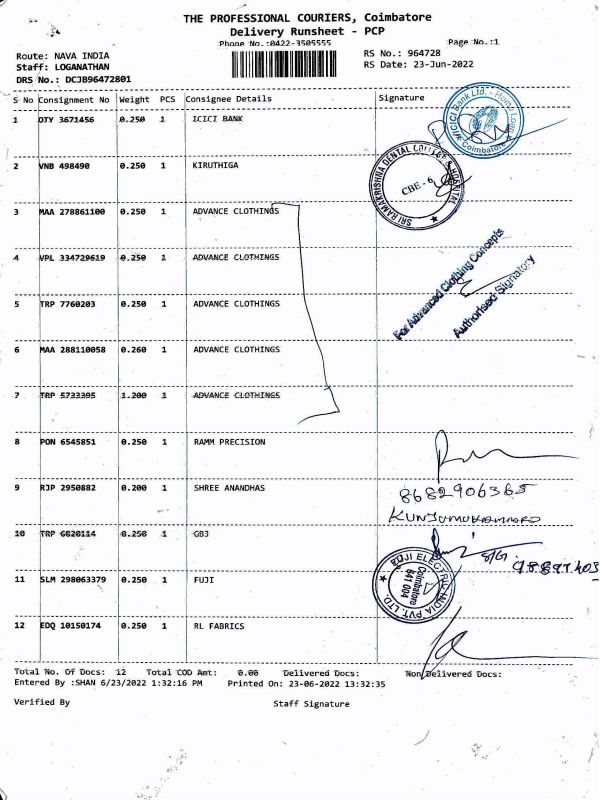 THE PROFESSIONAL COURIERS, Coimbatore
Delivery Runsheet - PCP
Phone No.:0422-3505555
Page No.:1
Route: NAVA INDIA
RS No.: 964728
Staff: LOGANATHAN
RS Date: 23-Jun-2022
DRS No.: DCJB96472801
S No Consignment No Weight PCS Consignee Details Signature
1 DTY 3671456 0.250 1 ICICI BANK
ICICI Bank Ltd. - Home Loan
Coimbatore
2 VNB 498490 0.250 1 KIRUTHIGA
SRI RAMAKRISHNA DENTAL COLLEGE & HOSPITAL
CBE - 6
3 MAA 278861100 0.250 1 ADVANCE CLOTHINGS
4 VPL 334729619 0.250 1 ADVANCE CLOTHINGS
For Advanced Clothing Concepts
Authorised Signatory
5 TRP 7760203 0.250 1 ADVANCE CLOTHINGS
6 MAA 288110058 0.260 1 ADVANCE CLOTHINGS
7 TRP 5733395 1.200 1 ADVANCE CLOTHINGS
8 PON 6545851 0.250 1 RAMM PRECISION
9 RJP 2950882 0.200 1 SHREE ANANDHAS
8682906365
10 TRP 6820114 0.250 1 GBJ
11 SLM 298063379 0.250 1 FUJI
FUJI ELECTRIC INDIA PVT. LTD.
Coimbatore
641 004
12 EDQ 10150174 0.250 1 RL FABRICS
Total No. Of Docs: 12 Total COD Amt: 0.00 Delivered Docs: Non Delivered Docs:
Entered By :SHAN 6/23/2022 1:32:16 PM Printed On: 23-06-2022 13:32:35
Verified By Staff Signature